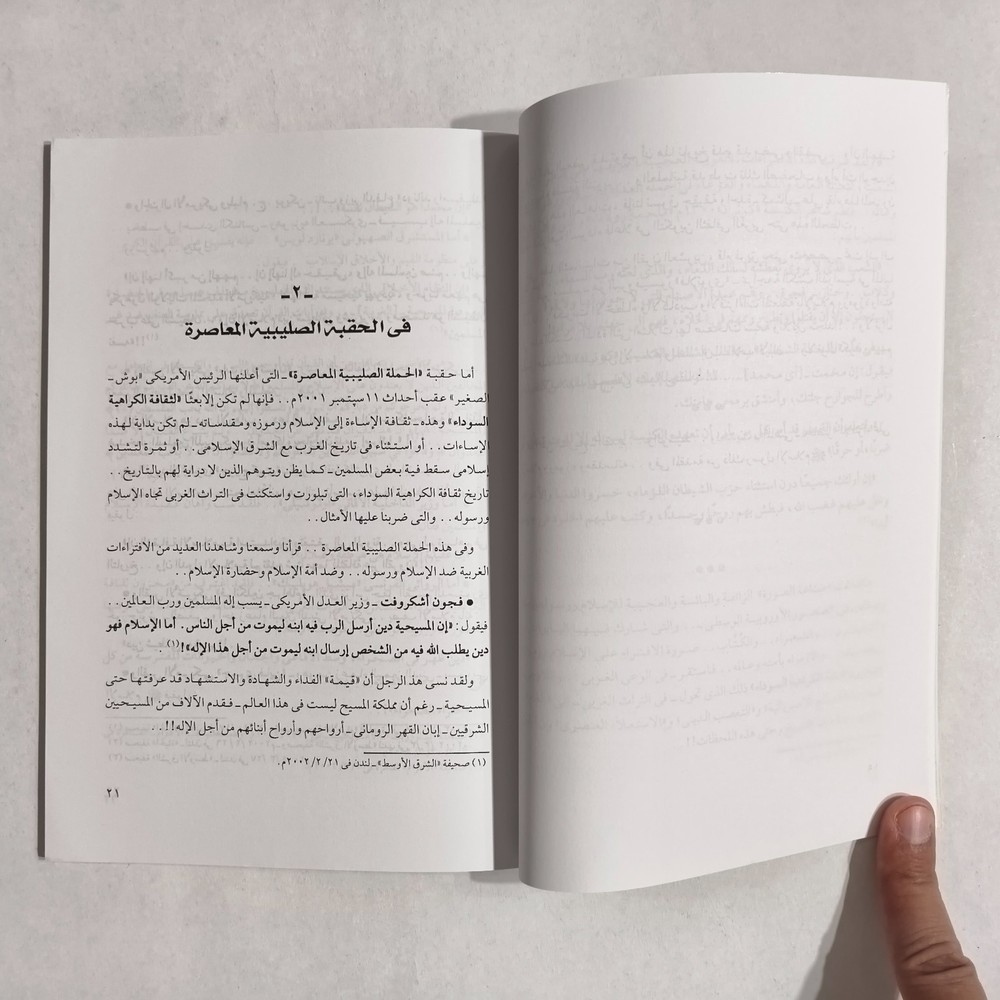 ـ ٢ ـ
فى الحقبة الصليبية المعاصرة
أما حقبة «الحملة الصليبية المعاصرة» ـ التى أعلنها الرئيس الأمريكى «بوش ـ
الصغير» عقب أحداث ١١ سپتمبر ٢٠٠١م . . فإنها لم تكن إلا بعثًا «لثقافة الكراهية
السوداء» وهذه ـ ثقافة الإساءة إلى الإسلام ورموزه ومقدساته ـ لم تكن بداية لهذه
الإساءات . . أو استثناء فى تاريخ الغرب مع الشرق الإسلامى . . أو ثمرة لتشدد
إسلامى سقط فية بعض المسلمين ـ كما يظن ويتوهم الذين لا دراية لهم بالتاريخ . .
تاريخ ثقافة الكراهية السوداء، التى تبلورت واستكنت فى التراث الغربى تجاه الإسلام
ورسوله . . والتى ضربنا عليها الأمثال . .
وفى هذه الحملة الصليبية المعاصرة . . قرأنا وسمعنا وشاهدنا العديد من الافتراءات
الغربية ضد الإسلام ورسوله . . وضد أمة الإسلام وحضارة الإسلام . .
● فچون أشكروفت ـ وزير العدل الأمريكى ـ يسب إله المسلمين ورب العالمين . .
فيقول : «إن المسيحية دين أرسل الرب فيه ابنه ليموت من أجل الناس. أما الإسلام فهو
دين يطلب الله فيه من الشخص إرسال ابنه ليموت من أجل هذا الإله»! (١) .
ولقد نسى هذا الرجل أن «قيمة» الفداء والشهادة والاستشهاد قد عرفتها حتى
المسيحية ـ رغم أن مملكة المسيح ليست فى هذا العالم ـ فقدم الآلاف من المسيحيين
الشرقيين ـ إبان القهر الرومانى ـ أرواحهم وأرواح أبنائهم من أجل الإله!! . .
(١) صحيفة «الشرق الأوسط» ـ لندن فى ٢١/ ٢/ ٢٠٠٢م.
٢١